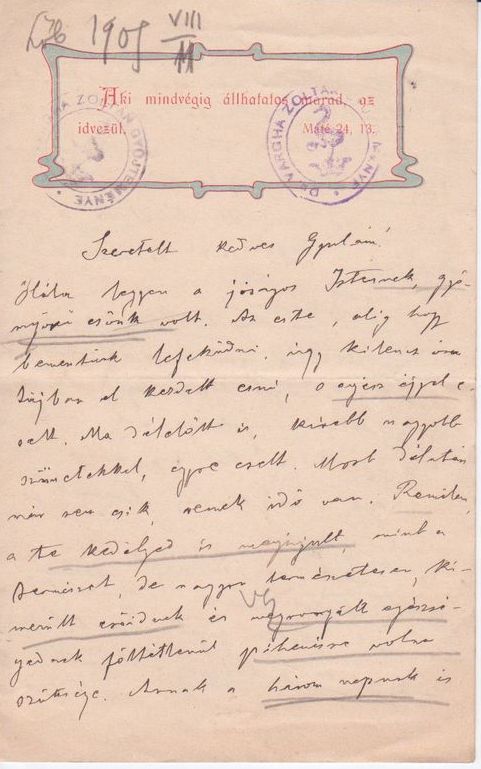 1905 VIII
11
Aki mindvégig állhatatos marad, az
idvezül. Máté 24, 13.
DR. VARGHA ZOLTÁN GYŰJTEMÉNYE
DR. VARGHA ZOLTÁN GYŰJTEMÉNYE
Szeretett kedves Gyulám!
Hála legyen a jóságos Istennek, gyö-
nyörű esőnk volt. Az este, alig hogy
bementünk lefeküdni, úgy kilencz óra
tájban el kezdett esni, s egész éjjel e-
sett. Ma délelőtt is, kisebb nagyobb
szünetekkel, egyre esett. Most délután
már nem esik, remek idő van. Remélem,
a te kedélyed is megújult, mint a
természet, de nagyon természetesen, ki-
merült erőidnek és megrongált egészsé-
gednek föltétlenül pihenésre volna
szüksége. Annak a három napnak is